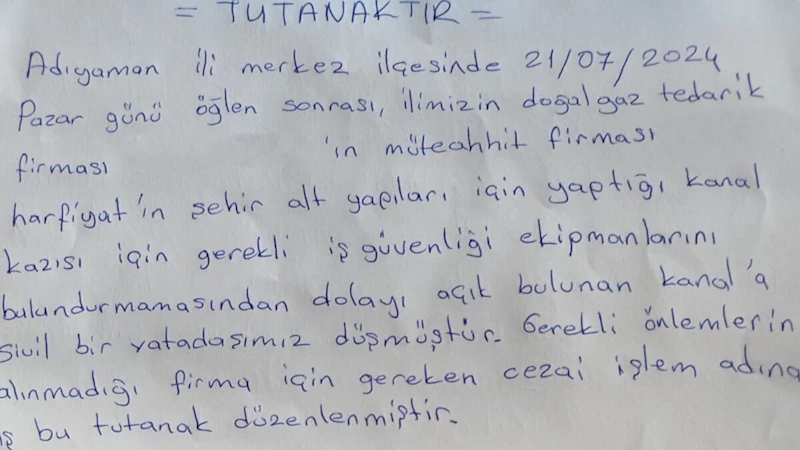 = TUTANAKTIR =
Adıyaman ili merkez ilçesinde 21/07/2024
Pazar günü öğlen sonrası, ilimizin doğalgaz tedarik
firması 'ın müteahhit firması
harfiyat'ın şehir alt yapıları için yaptığı kanal
kazısı için gerekli iş güvenliği ekipmanlarını
bulundurmamasından dolayı açık bulunan kanal'a
sivil bir vatadaşımız düşmüştür. Gerekli önlemlerin
alınmadığı firma için gereken cezai işlem adına
iş bu tutanak düzenlenmiştir.